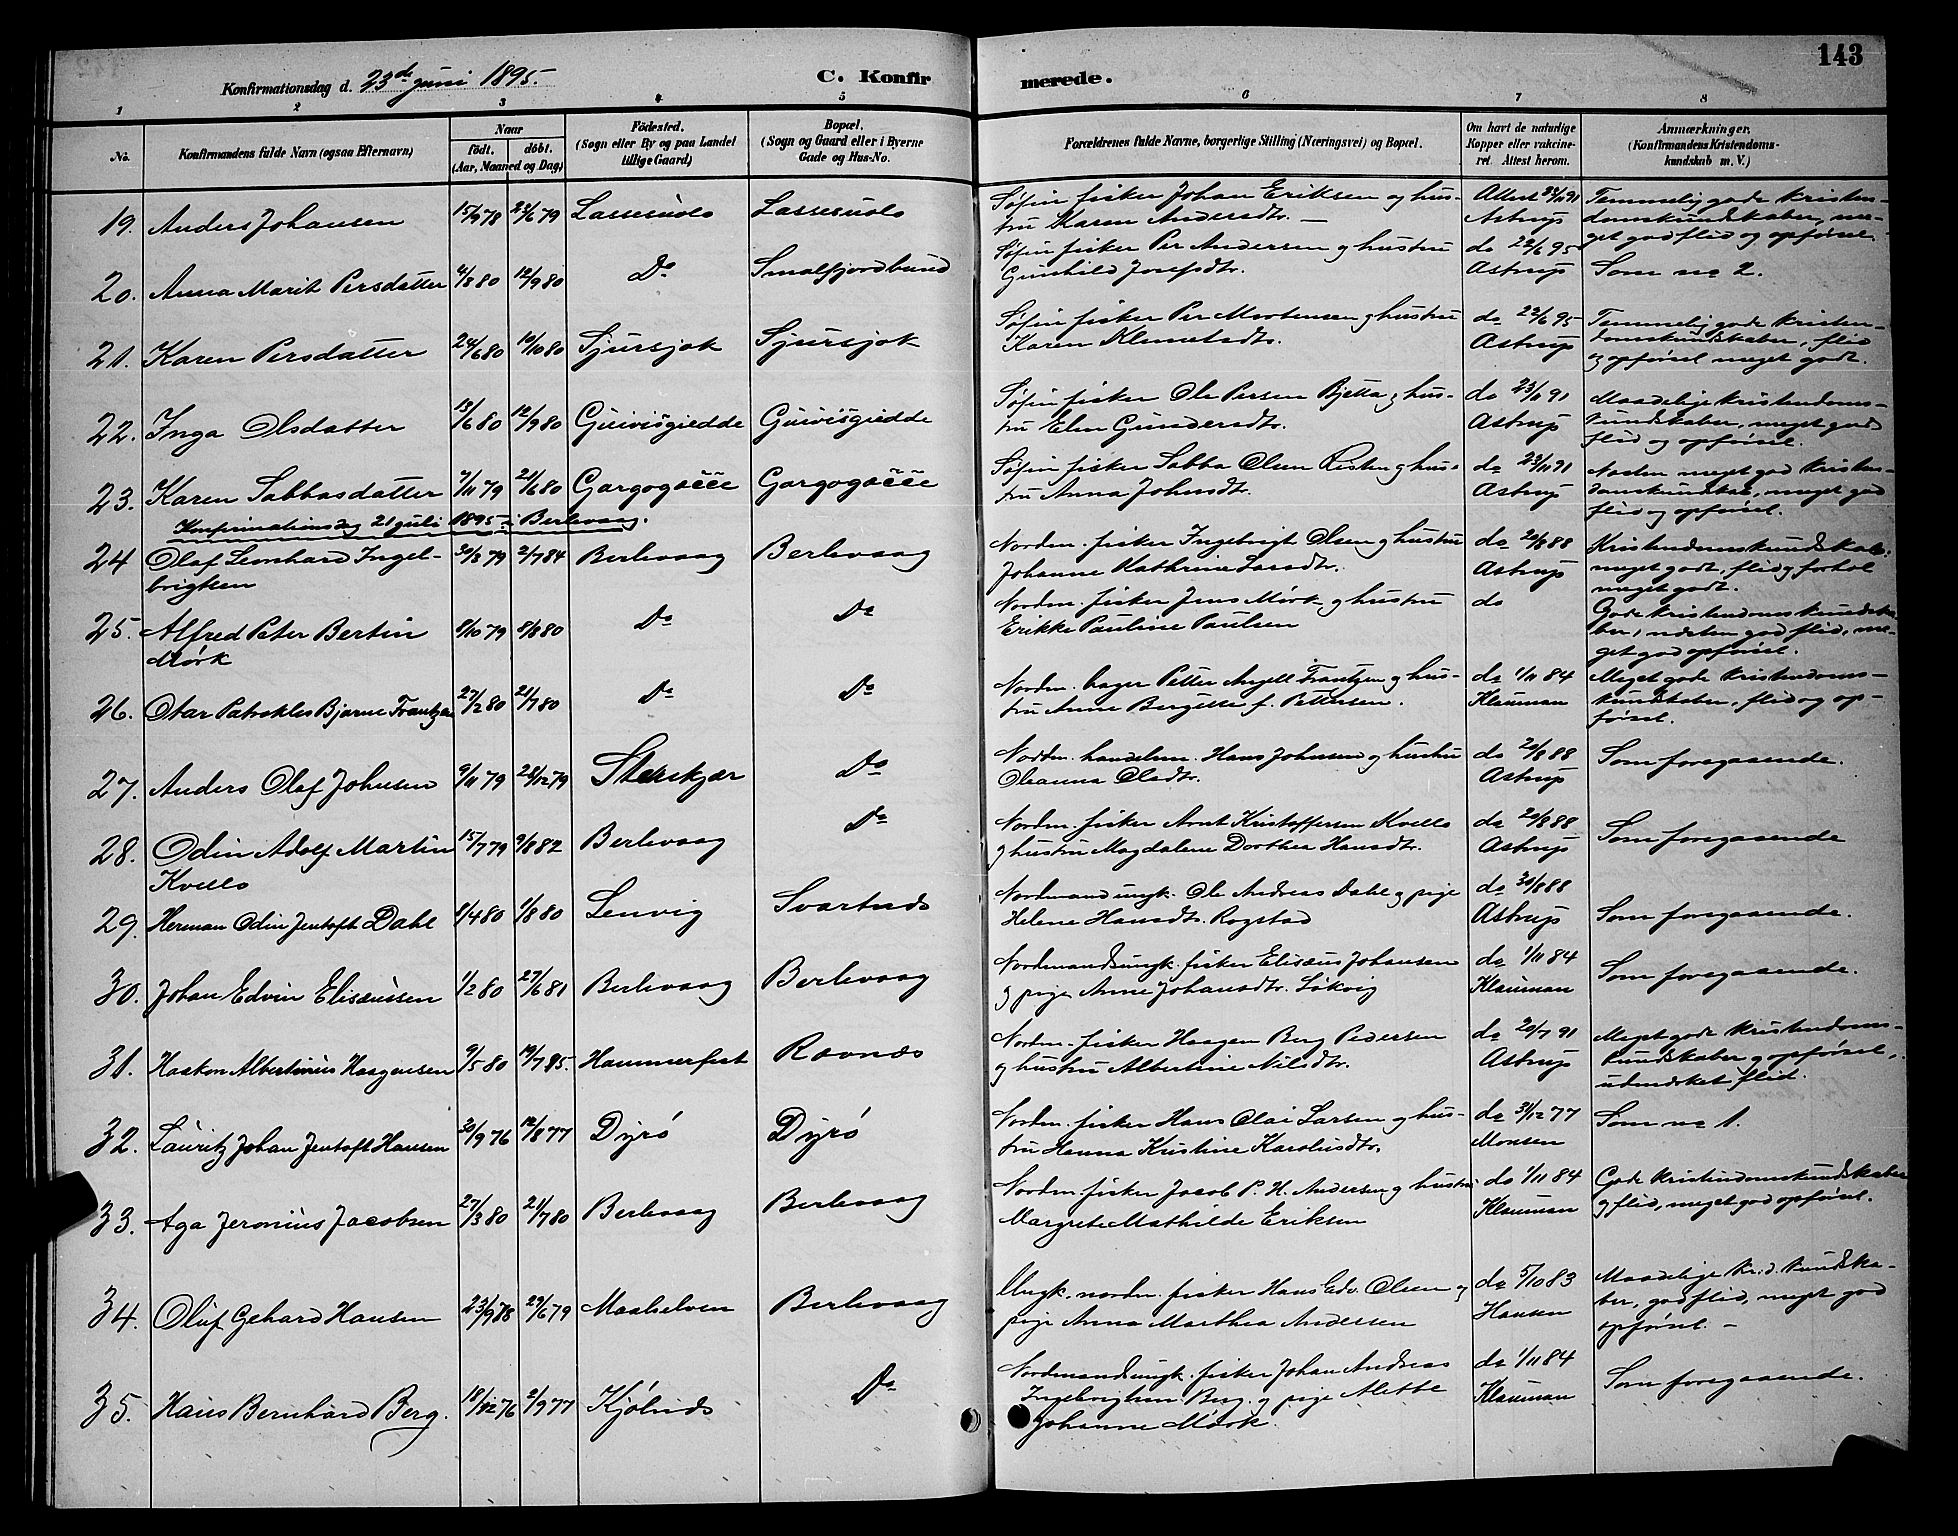 143
Konfirmationsdag d. 23de juni 1895.
C. Konfirmerede.
1 2 3 4 5 6 7 8
No.
Konfirmandens fulde Navn (ogsaa Efternavn)
Naar
födt. döbt.
(Aar, Maaned og Dag)
Födested.
(Sogn eller By og paa Landet
tillige Gaard)
Bopæl.
(Sogn og Gaard eller i Byerne
Gade og Hus-No.
Forældrenes fulde Navne, borgerlige Stilling (Næringsvei) og Bopæl.
Om havt de naturlige
Kopper eller vakcine-
ret. Attest herom.
Anmærkninger.
(Konfirmandens Kristendoms-
kundskab m. V.)
19. Anders Johansen 15/9 78 24/6 79 Lassesuolo Lassesuolo Søfin fisker Johan Eriksen og hus- Attest 23/11 91 Temmelig gode kristen-
tru Maren Andersdtr. — Astrup domskundskaber, me-
get god flid og opførsel.
20. Anna Marit Persdatter 4/8 80 12/9 80 Do Smalfjordbund Søfin fisker Per Andersen og hustru do 22/6 95
Gunhild Josefsdtr. Astrup Som no 2.
21. Karen Persdatter 24/6 80 10/10 80 Sjursjok Sjursjok Søfin fisker Per Mortensen og hustru do 22/6 95 Temmelig gode kristen-
Karen Klemetsdtr. Astrup domskundskaber, flid
og opførsel meget godt.
22. Inga Olsdatter 13/6 80 12/9 80 Guivisgiedde Guivisgiedde Søfin fisker Ole Persen Bjetta og hus- do 23/11 91 Maadelige kristendoms-
tru Elen Gundersdtr. Astrup kundskaber, meget god
flid og opførsel.
23. Karen Sabbasdatter 7/11 79 21/6 80 Gargogæcce Gargogæcce Søfin fisker Sabba Olsen Risten og hus- do 23/11 91 Næsten meget god kristen-
tru Anna Johnsdtr. Astrup domskundskab, meget god
flid og opførsel.
Konfirmationsdag 21 juli 1895 i Berlevaag.
24 Olaf Leonhard Ingel- 30/3 79 2/7 84 Berlevaag Berlevaag Nordm. fisker Ingebrigt Olsen og hustru do 20/8 88 Kristendomskundskab:
brigtsen Johanne Kathrine Larsdtr. Astrup meget godt, flid og forhol
meget godt.
25. Alfred Peter Bertin 8/10 79 8/8 80 Do Do Nordm. fisker Jens Mørk og hustru do Gode kristendomskundska-
Mørk Erikke Pauline Paulsen ber, næsten god flid, me-
get god opførsel.
26. Otar Patrokles Bjarne Frantzen 27/2 80 21/7 80 Do Do Nordm. bager Petter Angell Frantzen og hus- do 1/11 84 Meget gode kristendoms-
tru Anne Bergitte f. Pettersen. Klauman kundskaber, flid og op-
førsel.
27. Anders Olaf Johnsen 9/11 79 28/12 79 Sterskjær Do Nordm. handelsm. Hans Johnsen og hustru do 20/8 88 Som foregaaende.
Oleanna Olsdtr. Astrup
28. Odin Adolf Martin 15/7 79 9/8 82 Berlevaag Do Nordm. fisker Arnt Kristoffersen Kvello do 20/8 88 Som foregaaende
Kvello og hustru Magdalene Dorthea Hansdtr. Astrup
29. Herman Odin Jentoft Dahl 8/4 80 1/8 80 Lenvig Svartnæs Nordmand ungk. Ole Andreas Dahl og pige do 30/8 88
Helene Hansdtr. Rogstad Astrup Som foregaaende.
30. Johan Edvin Elisæussen 1/2 80 27/6 81 Berlevaag Berlevaag Nordmand ungk. fisker Elisæus Johansen do 1/11 84 Som foregaaende.
og pige Anne Johansdtr. Løkvig Klauman
31. Haakon Albertinius Haagensen 9/5 80 19/7 85. Hammerfest Ravnæs Nordm. fisker Haagen Berg Pedersen do 20/7 91 Meget gode kristendoms-
og hustru Albertine Nilsdtr. Astrup kundskaber og opførsel,
udmærket flid.
32. Lauritz Johan Jentoft Hansen 30/9 76 12/8 77 Dyrø Dyrø Nordm. fisker Hans Olai Larsen og hus- do 31/12 77 Som no 1.
tru Hanna Kristine Karolusdtr. Monsen
33. Aga Jeronius Jacobsen 27/3 80 21/7 80 Berlevaag Berlevaag Nordm. fisker Jacob P. H. Andersen og hustru do 1/11 84 Gode kristendomskundskaber
Margrete Mathilde Eriksen Klauman og flid, meget god opførsel.
34. Oluf Gehard Hansen 23/9 78 29/6 79 Maalselven Berlevaag Ungk. nordm. fisker Hans Edv. Olsen og do 5/10 83 Maadelige kr.d. kundska-
pige Anna Marthea Andersen Hansen ber, god flid, meget god
opførsel. —
35. Hans Bernhard Berg. 18/12 76 2/9 77 Kjølnæs Do Nordmand ungk. fisker Johan Andreas do 1/11 84 Som foregaaende.
Ingebrigtsen Berg og pige Alette Klauman
Johanne Mørk.